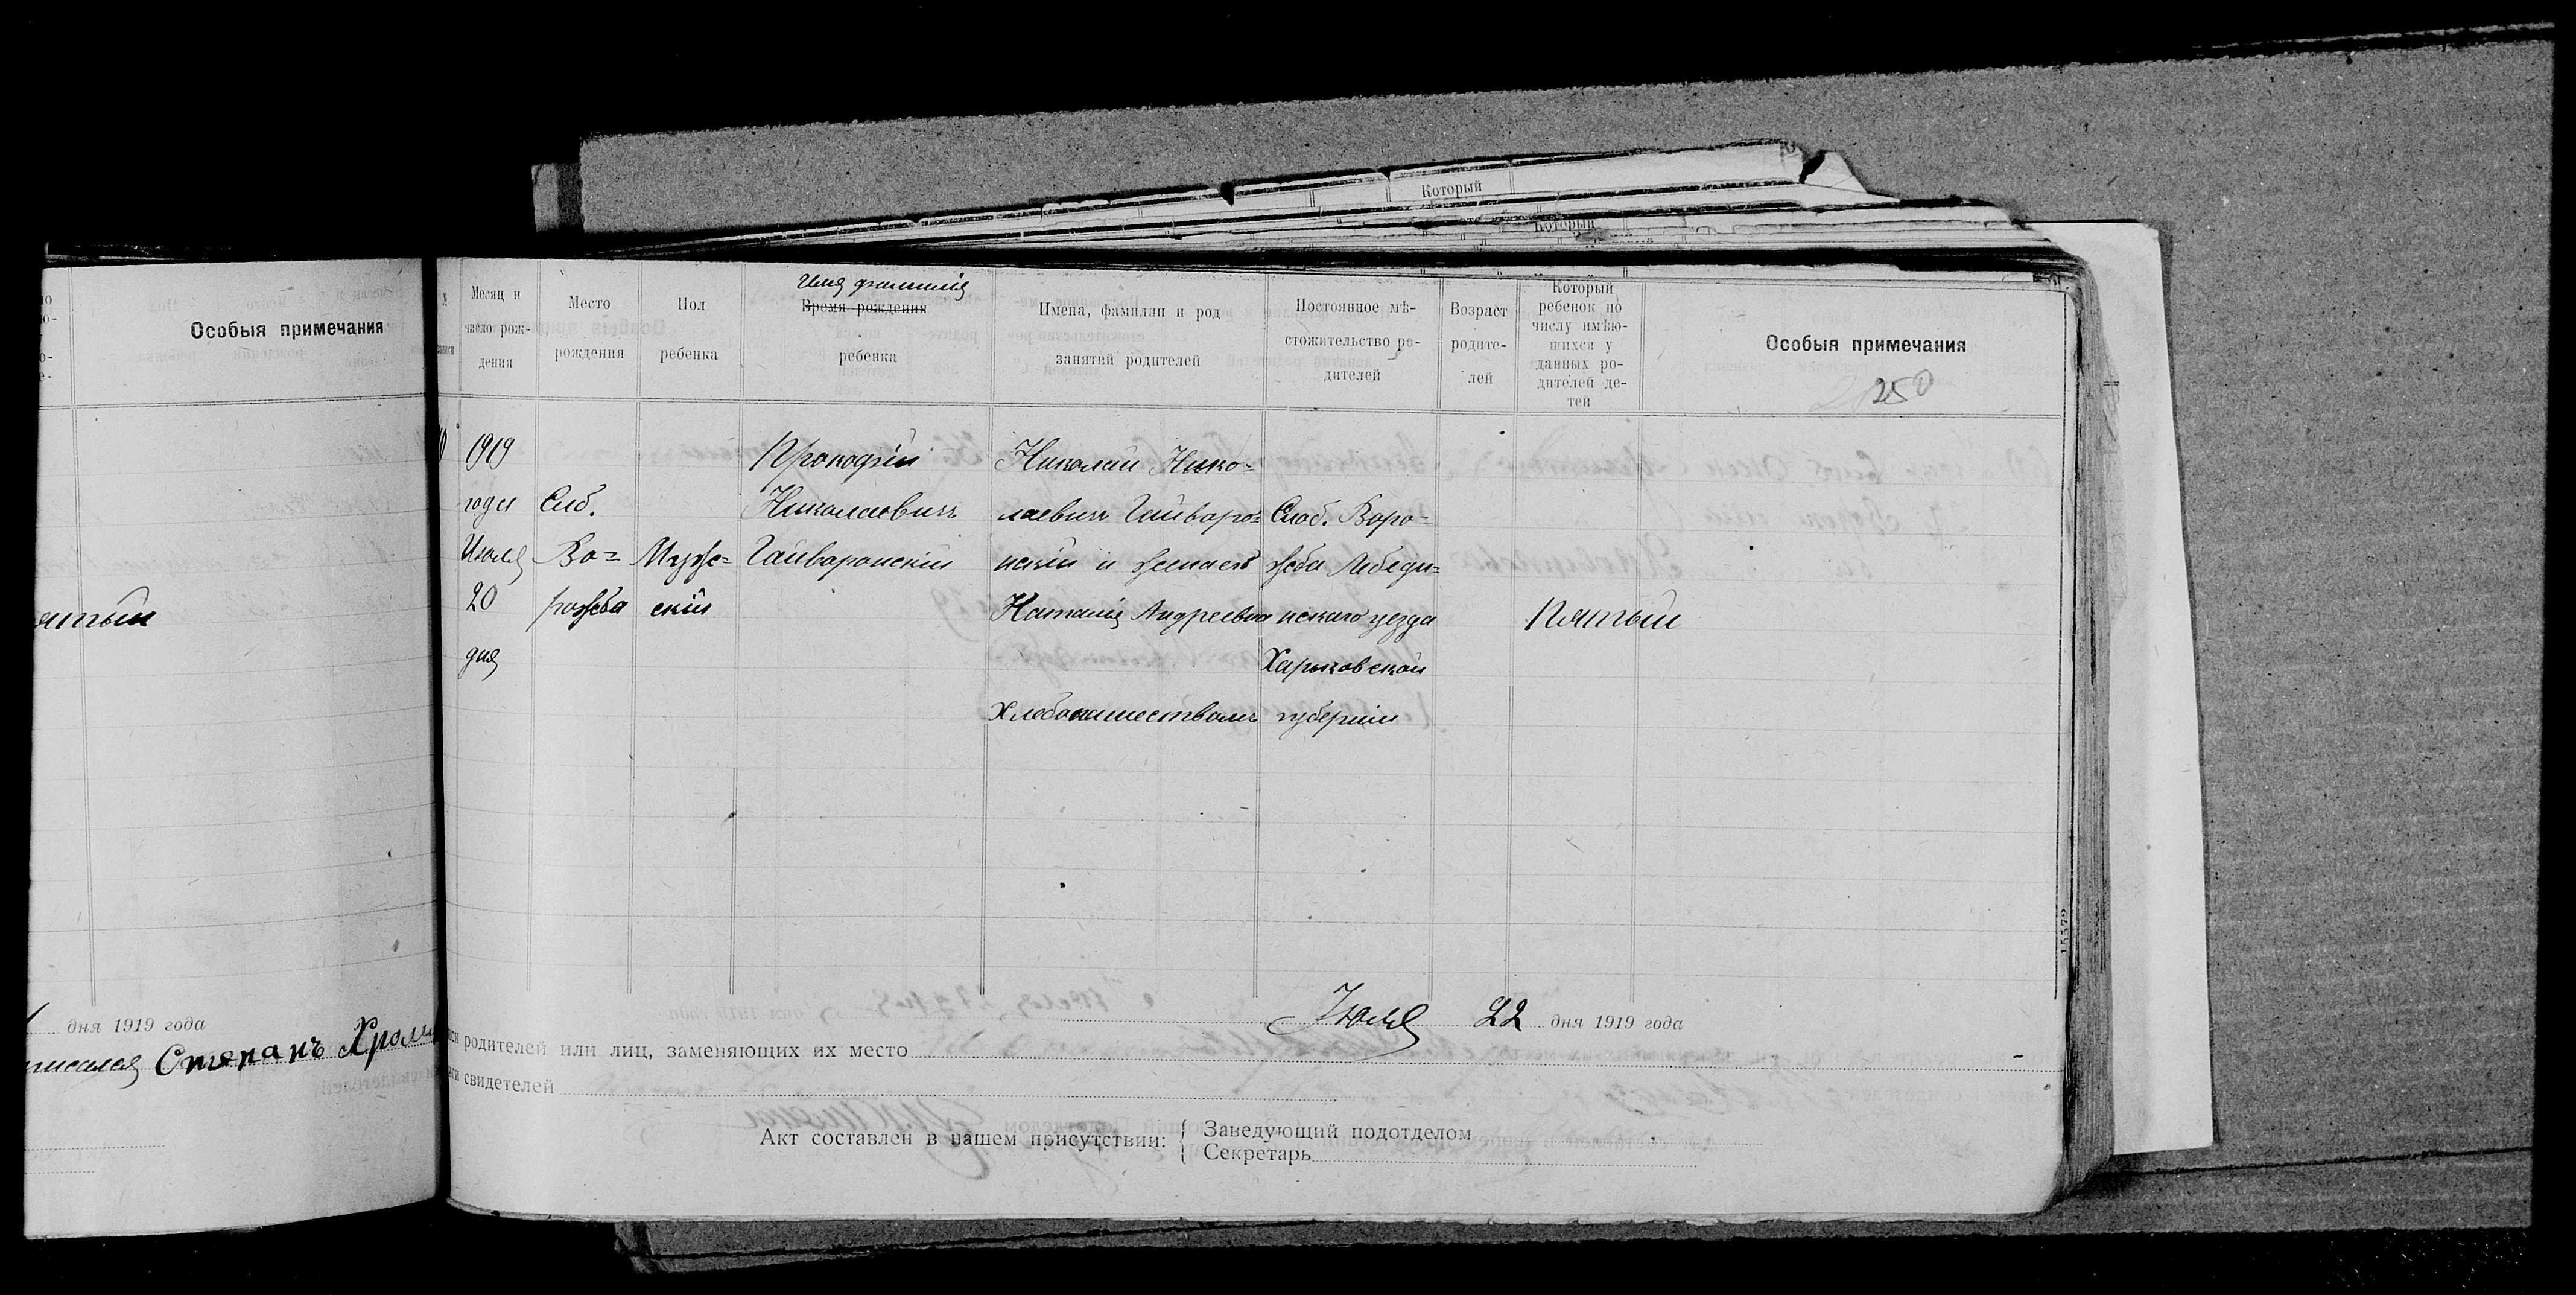 Который
Который
Особыя примечания
Месяц и
число рож-
дения
Место
рождения
Пол
ребенка
Имя фамилія
Время рождения
ребенка
Имена, фамилии и род
занятий родителей
Постоянное мѣ-
стожительство ро-
дителей
Возраст
родите-
лей
Который
ребенок по
числу имѣю-
щихся у
данных ро-
дителей де-
тей
Особыя примечания
250
1919
года
Июля
20
дня
Слб.
Во=
рожба
Мужс=
скій
Прокофій
Николаевичъ
Гайворонскій
Николай Нико=
лаевичъ Гайворо=
нскій и
Наталія Андреевна
Хлебопашествомъ
Слоб. Воро=
жба Лебеди=
нскаго уезда
Харьковской
губерніи
Пятый
дня 1919 года
Степанъ
Июля 22 дня 1919 года
родителей или лиц, заменяющих их место
свидетелей
Акт составлен в нашем присутствии:
Заведующий подотделом
Секретарь
15579